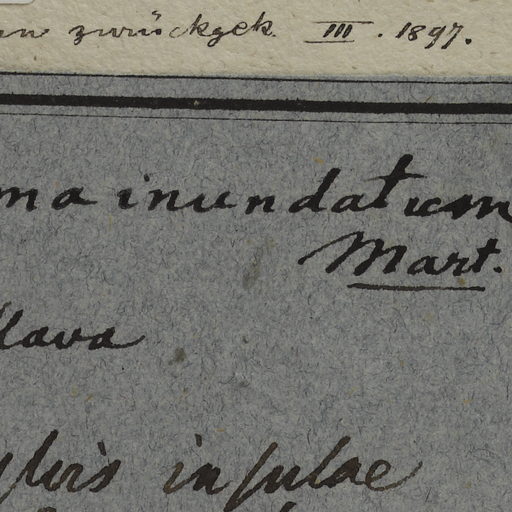 zurückgek. III. 1897.
ma inundatum
Mart.
flava
sylvis insulae